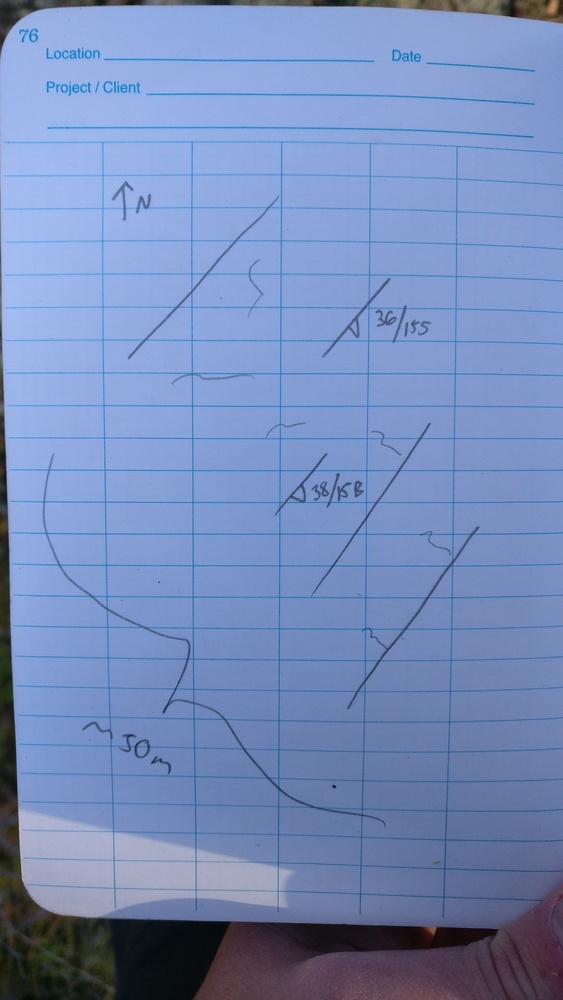 76
Location
Date
Project / Client
N
36/155
38/158
~ 50m